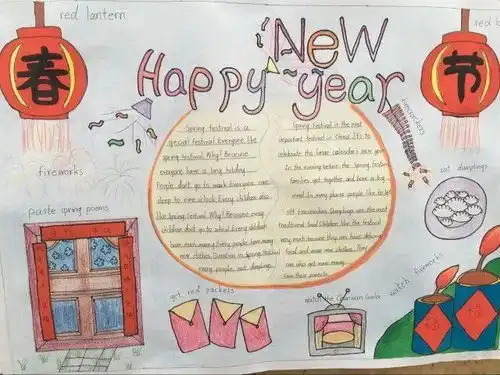 red lantern
New
Happy year
春
节
red l
firecrackers
fireworks
eat dumplings
paste spring poems
Spring festival is a
special festival. Everyone like
spring festival. Why? Because
everyone have a long holiday.
People don't go to work. Everyone can
sleep to nine o'clock. Every children also
like Spring festival. Why? Because every
children don't go to school. Every children
have
money. Every people have many
new clothes. On Spring festival
many people eat dumplings.
Spring festival is the most
important festival in China. It's to
celebrate the lunar calendar's new year.
In the evening before the Spring Festival
families get together and have a big
meal. In many places people like to set
off firecrackers. Dumplings are the most
traditional food. Children like the festival
very much because they can have delicious
food and wear new clothes. They
can also get some money
from their parents.
get red packets
watch the
Gala
watch fireworks